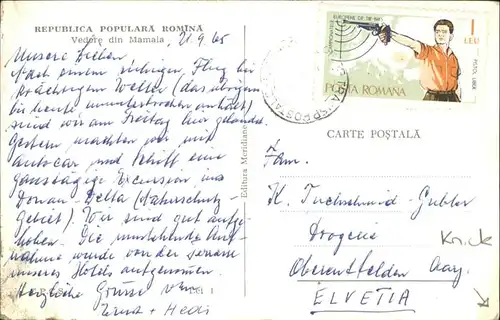 REPUBLICA POPULARĂ ROMÎNĂ
Vedere din Mamaia
21.9.65
Unsere Lieben
Nach einem ruhigen Flug bei
prächtigem Wetter (das übrigens
bis heute ununterbrochen anhält)
sind wir am Freitag hier gelandet.
Gestern machten wir mit
autocar und Schiff eine
ganztägige Excursion ins
Donau-Delta (Naturschutz-
gebiet). Wir sind gut aufge-
hoben. Die umstehende Auf-
nahme wurde von der Terasse
unseres Hotels aufgenommen.
Herzliche Grüsse von
Ernst + Hedi
Editura Meridiane
CAMPIONATELE EUROPENE DE TIR-1965
1
LEU
PISTOL LIBER
POSTA ROMANA
CARTE POŞTALĂ
Fam.
H. Tuchschmid-Gubler
Drogerie
Oberentfelden Aarg.
ELVEȚIA
Knick